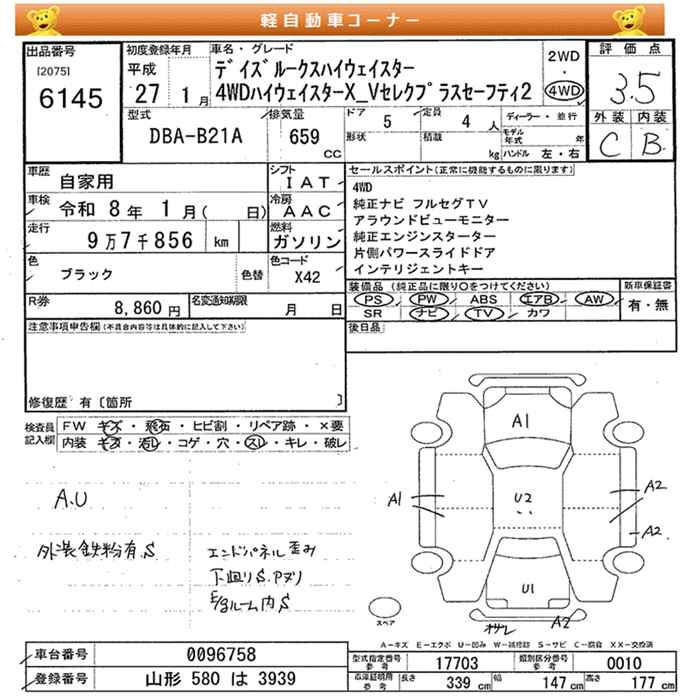 軽自動車コーナー
出品番号
[2075]
6145
初度登録年月
平成
27 1月
車名・グレード
デイズルークスハイウェイスター
4WDハイウェイスターX_Vセレクプラスセーフティ2
2WD
・
4WD
評価点
3.5
外装 内装
C B
型式
DBA-B21A
排気量
659
cc
ドア
5
定員
4 人
形状
積載
kg
ディーラー・並行
モデル年式 年
ハンドル 左・右
車歴
自家用
シフト
IAT
車検
令和 8年 1月( 日)
冷房
AAC
走行
9万7千856 km
燃料
ガソリン
色
ブラック
色替
色コード
X42
R券
8,860 円
名変通知期限
月 日
セールスポイント(正常に機能するものに限ります)
4WD
純正ナビ フルセグTV
アラウンドビューモニター
純正エンジンスターター
片側パワースライドドア
インテリジェントキー
装備品 (純正品に限り○をつけてください)
PS PW ABS エアB AW
SR ナビ TV カワ
新車保証書
有・無
後日品
注意事項申告欄(不具合内容等は具体的に記入して下さい)
修復歴 有〔箇所 〕
検査員
記入欄
FW キズ・飛石・ヒビ割・リペア跡・×要
内装 キズ・汚レ・コゲ・穴・スレ・キレ・破レ
A.U
外装鉄粉有.S
エンドパネル歪み
下回りS.アズリ
E/gルーム内S
A1
A1
U2
A2
A2
U1
A2
スペア
A-キズ E-エクボ U-凹み W-補修跡 S-サビ C-腐食 XX-交換済
車台番号
0096758
登録番号
山形 580 は 3939
型式指定番号
参考
17703
類別区分番号
参考
0010
車庫証明用
参考
長さ
339 cm
幅
147 cm
高さ
177 cm